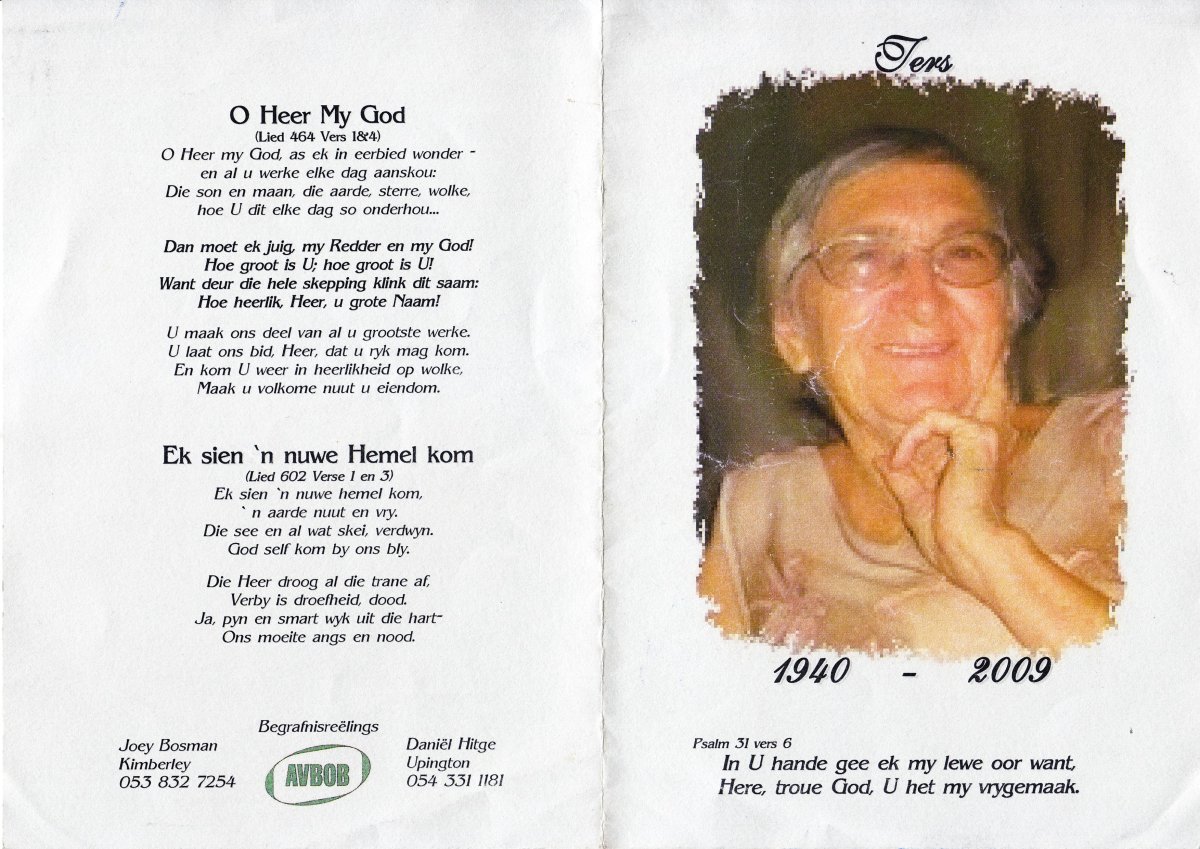 O Heer My God
(Lied 464 Vers 1&4)
O Heer my God, as ek in eerbied wonder -
en al u werke elke dag aanskou:
Die son en maan, die aarde, sterre, wolke,
hoe U dit elke dag so onderhou...
Dan moet ek juig, my Redder en my God!
Hoe groot is U; hoe groot is U!
Want deur die hele skepping klink dit saam:
Hoe heerlik, Heer, u grote Naam!
U maak ons deel van al u grootste werke.
U laat ons bid, Heer, dat u ryk mag kom.
En kom U weer in heerlikheid op wolke,
Maak u volkome nuut u eiendom.
Ek sien `n nuwe Hemel kom
(Lied 602 Verse 1 en 3)
Ek sien `n nuwe hemel kom,
` n aarde nuut en vry.
Die see en al wat skei, verdwyn.
God self kom by ons bly.
Die Heer droog al die trane af,
Verby is droefheid, dood.
Ja, pyn en smart wyk uit die hart-
Ons moeite angs en nood.
Begrafnisreëlings
Joey Bosman
Kimberley
053 832 7254
AVBOB
Daniël Hitge
Upington
054 331 1181
Ters
1940 - 2009
Psalm 31 vers 6
In U hande gee ek my lewe oor want,
Here, troue God, U het my vrygemaak.